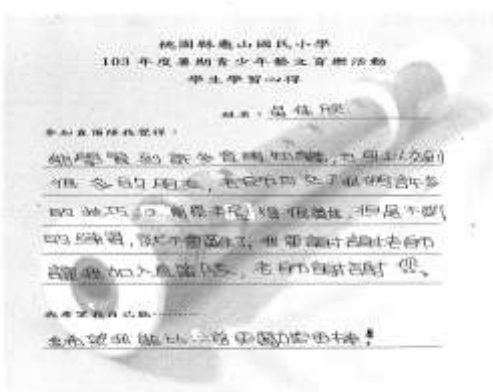 桃園縣龜山國民小學
103 年度暑期青少年藝文育樂活動
學生學習心得
姓名：吳佳欣
參加直笛隊我覺得：
能學習到許多音階知識，也可以交到
很多的朋友，老師也教了我們許多
的技巧。雖然 很難，但是不斷
的練習，就不會 了，我要謝謝老師
讓我加入直笛隊，老師謝謝您。
我希望我自己能…………
我希望我能比以前更 更棒！